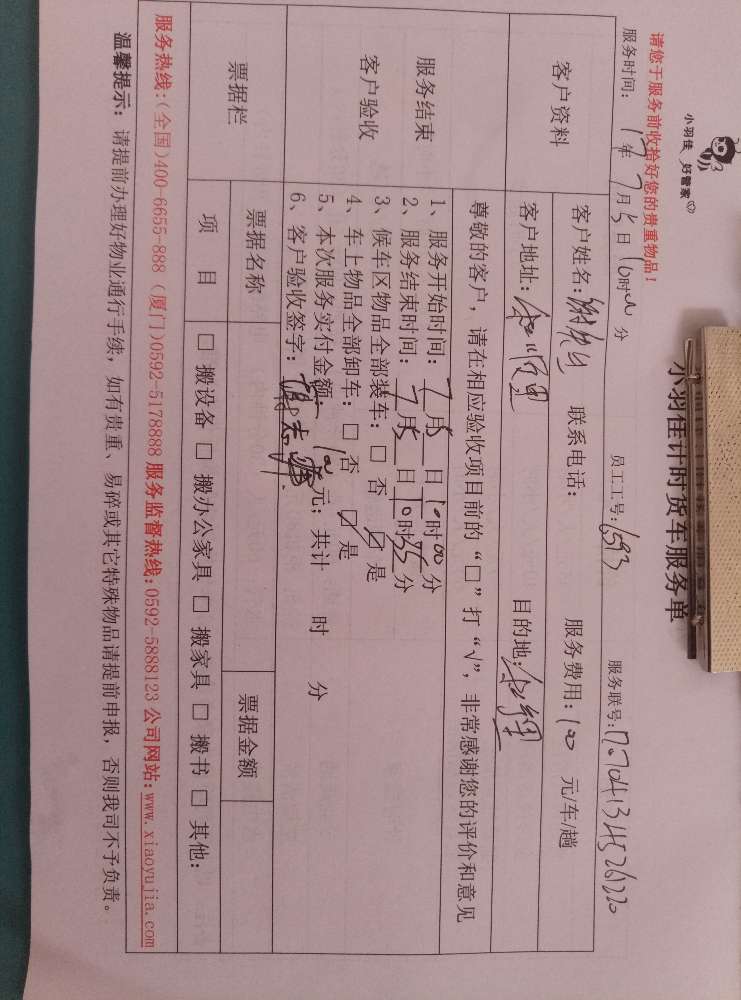 小羽佳 好管家
小羽佳计时货车服务单
请您于服务前收拾好您的贵重物品！
服务时间：17年7月5日10时00分 员工工号：6593 服务联号：17070413452620
客户资料
客户姓名： 联系电话： 服务费用：100 元/车/趟
客户地址： 目的地：
服务结束
客户验收
尊敬的客户，请在相应验收项目前的“□”打“√”，非常感谢您的评价和意见
1、服务开始时间：7月5日10时00分
2、服务结束时间：7月5日10时35分
3、候车区物品全部装车：□ 否 ☑ 是
4、车上物品全部卸车：□ 否 ☑ 是
5、本次服务实付金额：100元；共计 时 分
6、客户验收签字：
票据栏 票据名称 票据金额
项 目 □ 搬设备 □ 搬办公家具 □ 搬家具 □ 搬书 □ 其他：
服务热线：（全国）400-6655-888（厦门）0592-5178888 服务监督热线：0592-5888123 公司网站：www.xiaoyujia.com
温馨提示：请提前办理好物业通行手续，如有贵重、易碎或其它特殊物品请提前申报，否则我司不予负责。